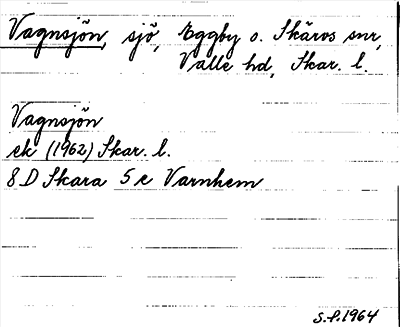 Vagnsjön, sjö, Eggby o. Skärvs snr,
Valle hd, Skar. l.
Vagnsjön
ek (1962) Skar. l.
8 D Skara 5 e Varnhem
S.P. 1964